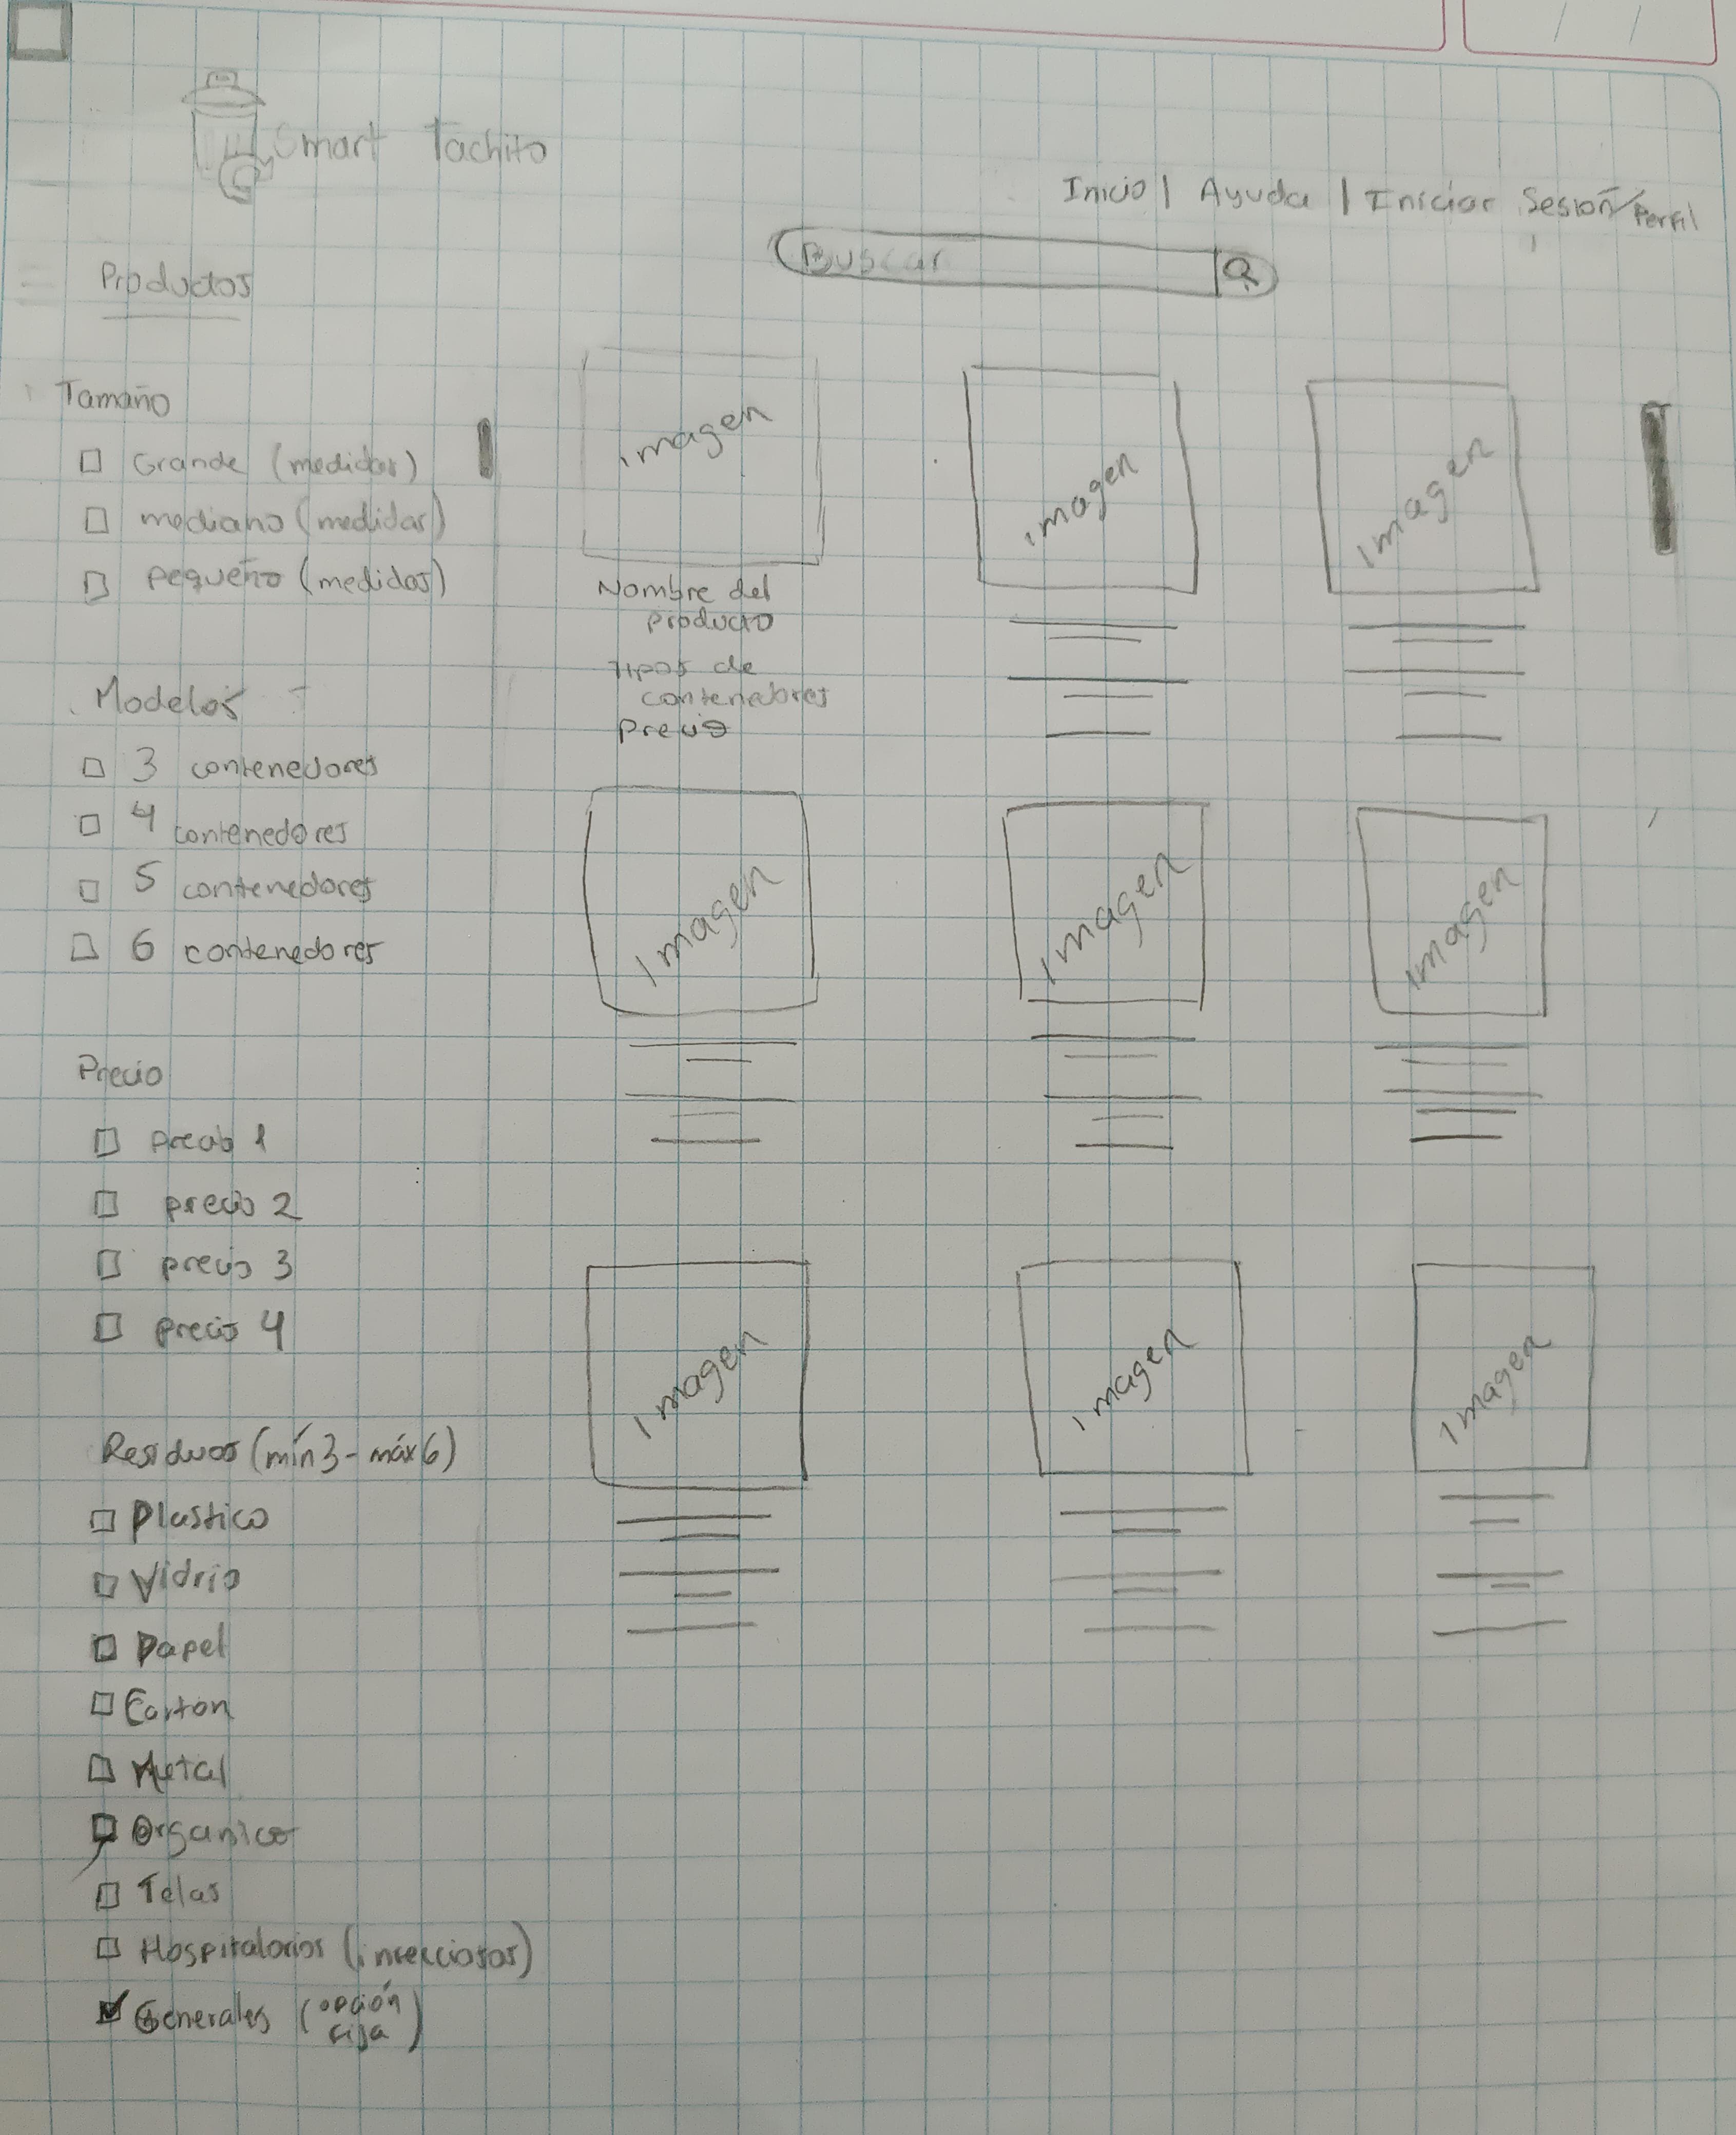 Smart Tachito
Inicio | Ayuda | Iniciar Sesión/Perfil
Buscar
Productos
Tamaño
Grande (medidas)
mediano (medidas)
pequeño (medidas)
Modelos
3 contenedores
4 contenedores
5 contenedores
6 contenedores
Precio
precio 1
precio 2
precio 3
precio 4
Residuos (mín 3 - máx 6)
Plastico
Vidrio
Papel
Carton
Metal
Organico
Telas
Hospitalarios (infecciosos)
Generales (opción
fija)
imagen
imagen
imagen
Nombre del
producto
Tipos de
contenedores
Precio
Imagen
Imagen
Imagen
Imagen
Imagen
Imagen